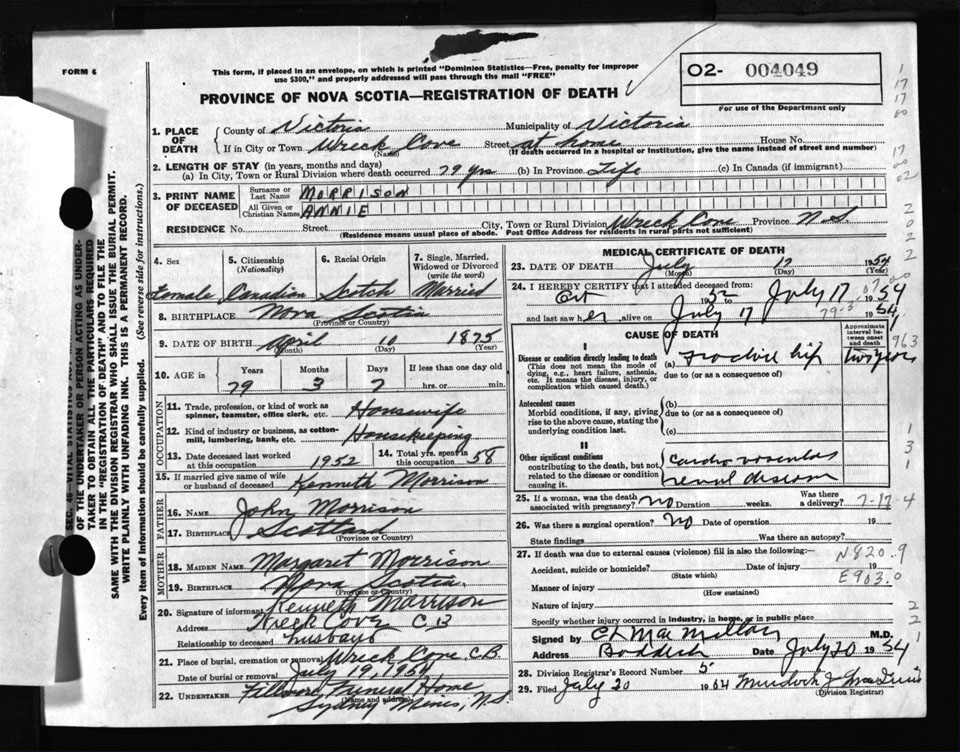 FORM 6
This form, if placed in an envelope, on which is printed "Dominion Statistics—Free, penalty for improper
use $300," and properly addressed will pass through the mail "FREE"
O2- 004049
For use of the Department only
PROVINCE OF NOVA SCOTIA—REGISTRATION OF DEATH
1. PLACE OF DEATH
County of Victoria Municipality of Victoria
If in City or Town Wreck Cove Street at home House No.
(Name) (If death occurred in a hospital or institution, give the name instead of street and number)
2. LENGTH OF STAY (in years, months and days)
(a) In City, Town or Rural Division where death occurred 79 yrs (b) In Province Life (c) In Canada (if immigrant)
3. PRINT NAME OF DECEASED
Surname or Last Name MORRISON
All Given or Christian Names ANNIE
RESIDENCE No. Street City, Town or Rural Division Wreck Cove Province N.S
(Residence means usual place of abode. Post Office Address for residents in rural parts not sufficient)
4. Sex Female
5. Citizenship (Nationality) Canadian
6. Racial Origin Scotch
7. Single, Married, Widowed or Divorced (write the word) Married
8. BIRTHPLACE Nova Scotia
(Province or Country)
9. DATE OF BIRTH April 10 1875
(Month) (Day) (Year)
10. AGE in Years Months Days If less than one day old
79 3 7 hrs. or min.
OCCUPATION
11. Trade, profession, or kind of work as spinner, teamster, office clerk, etc. Housewife
12. Kind of industry or business, as cotton-mill, lumbering, bank, etc. Housekeeping
13. Date deceased last worked at this occupation 1952
14. Total yrs. spent in this occupation 58
15. If married give name of wife or husband of deceased Kenneth Morrison
FATHER
16. NAME John Morrison
17. BIRTHPLACE Scotland
(Province or Country)
MOTHER
18. MAIDEN NAME Margaret Morrison
19. BIRTHPLACE Nova Scotia
(Province or Country)
20. Signature of informant Kenneth Morrison
Address Wreck Cove C B
Relationship to deceased husband
21. Place of burial, cremation or removal Wreck Cove C.B.
Date of burial or removal July 19, 1954
22. UNDERTAKER Fillmore Funeral Home
(Name and address)
Sydney Mines, N.S.
MEDICAL CERTIFICATE OF DEATH
23. DATE OF DEATH July 17 1954
(Month) (Day) (Year)
24. I HEREBY CERTIFY that I attended deceased from:
Oct 1952 July 17 1954
and last saw her alive on July 17 1954
CAUSE OF DEATH
Approximate interval between onset and death
I
Disease or condition directly leading to death
(This does not mean the mode of dying, e.g., heart failure, asthenia, etc. It means the disease, injury, or complication which caused death.)
(a) Fracture hip two years
due to (or as a consequence of)
Antecedent causes
Morbid conditions, if any, giving rise to the above cause, stating the underlying condition last.
(b)
due to (or as a consequence of)
(c)
II
Other significant conditions contributing to the death, but not related to the disease or condition causing it.
cardio vascular
renal disease
25. If a woman, was the death associated with pregnancy? No Duration weeks. Was there a delivery?
7-17-4
26. Was there a surgical operation? No Date of operation 19
State findings Was there an autopsy?
27. If death was due to external causes (violence) fill in also the following:—
N820.9
Accident, suicide or homicide? Date of injury 19
(State which)
E903.0
Manner of injury
(How sustained)
Nature of injury
Specify whether injury occurred in industry, in home, or in public place
Signed by C L MacMillan M.D.
Address Baddeck Date July 20 1954
28. Division Registrar's Record Number 5
29. Filed July 20 1954
(Division Registrar)
SEC. 46—VITAL STATISTICS
OF THE UNDERTAKER OR PERSON ACTING AS UNDER-
TAKER TO OBTAIN ALL THE PARTICULARS REQUIRED
IN THE "REGISTRATION OF DEATH" AND TO FILE THE
SAME WITH THE DIVISION REGISTRAR WHO SHALL ISSUE THE BURIAL PERMIT.
WRITE PLAINLY WITH UNFADING INK. THIS IS A PERMANENT RECORD.
Every item of information should be carefully supplied. (See reverse side for instructions.)